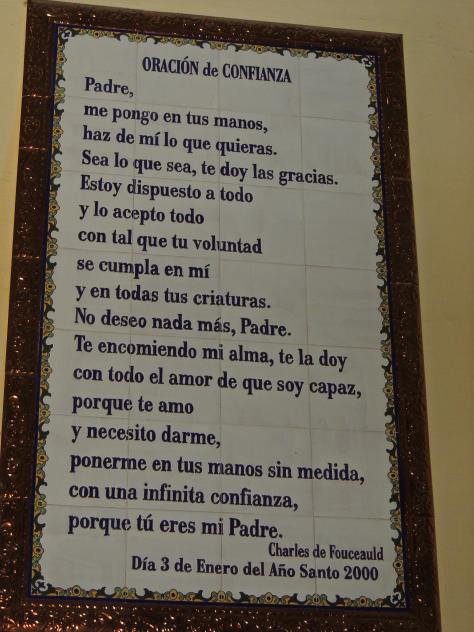 ORACIÓN de CONFIANZA
Padre,
me pongo en tus manos,
haz de mí lo que quieras.
Sea lo que sea, te doy las gracias.
Estoy dispuesto a todo
y lo acepto todo
con tal que tu voluntad
se cumpla en mí
y en todas tus criaturas.
No deseo nada más, Padre.
Te encomiendo mi alma, te la doy
con todo el amor de que soy capaz,
porque te amo
y necesito darme,
ponerme en tus manos sin medida,
con una infinita confianza,
porque tú eres mi Padre.
Charles de Fouceauld
Día 3 de Enero del Año Santo 2000